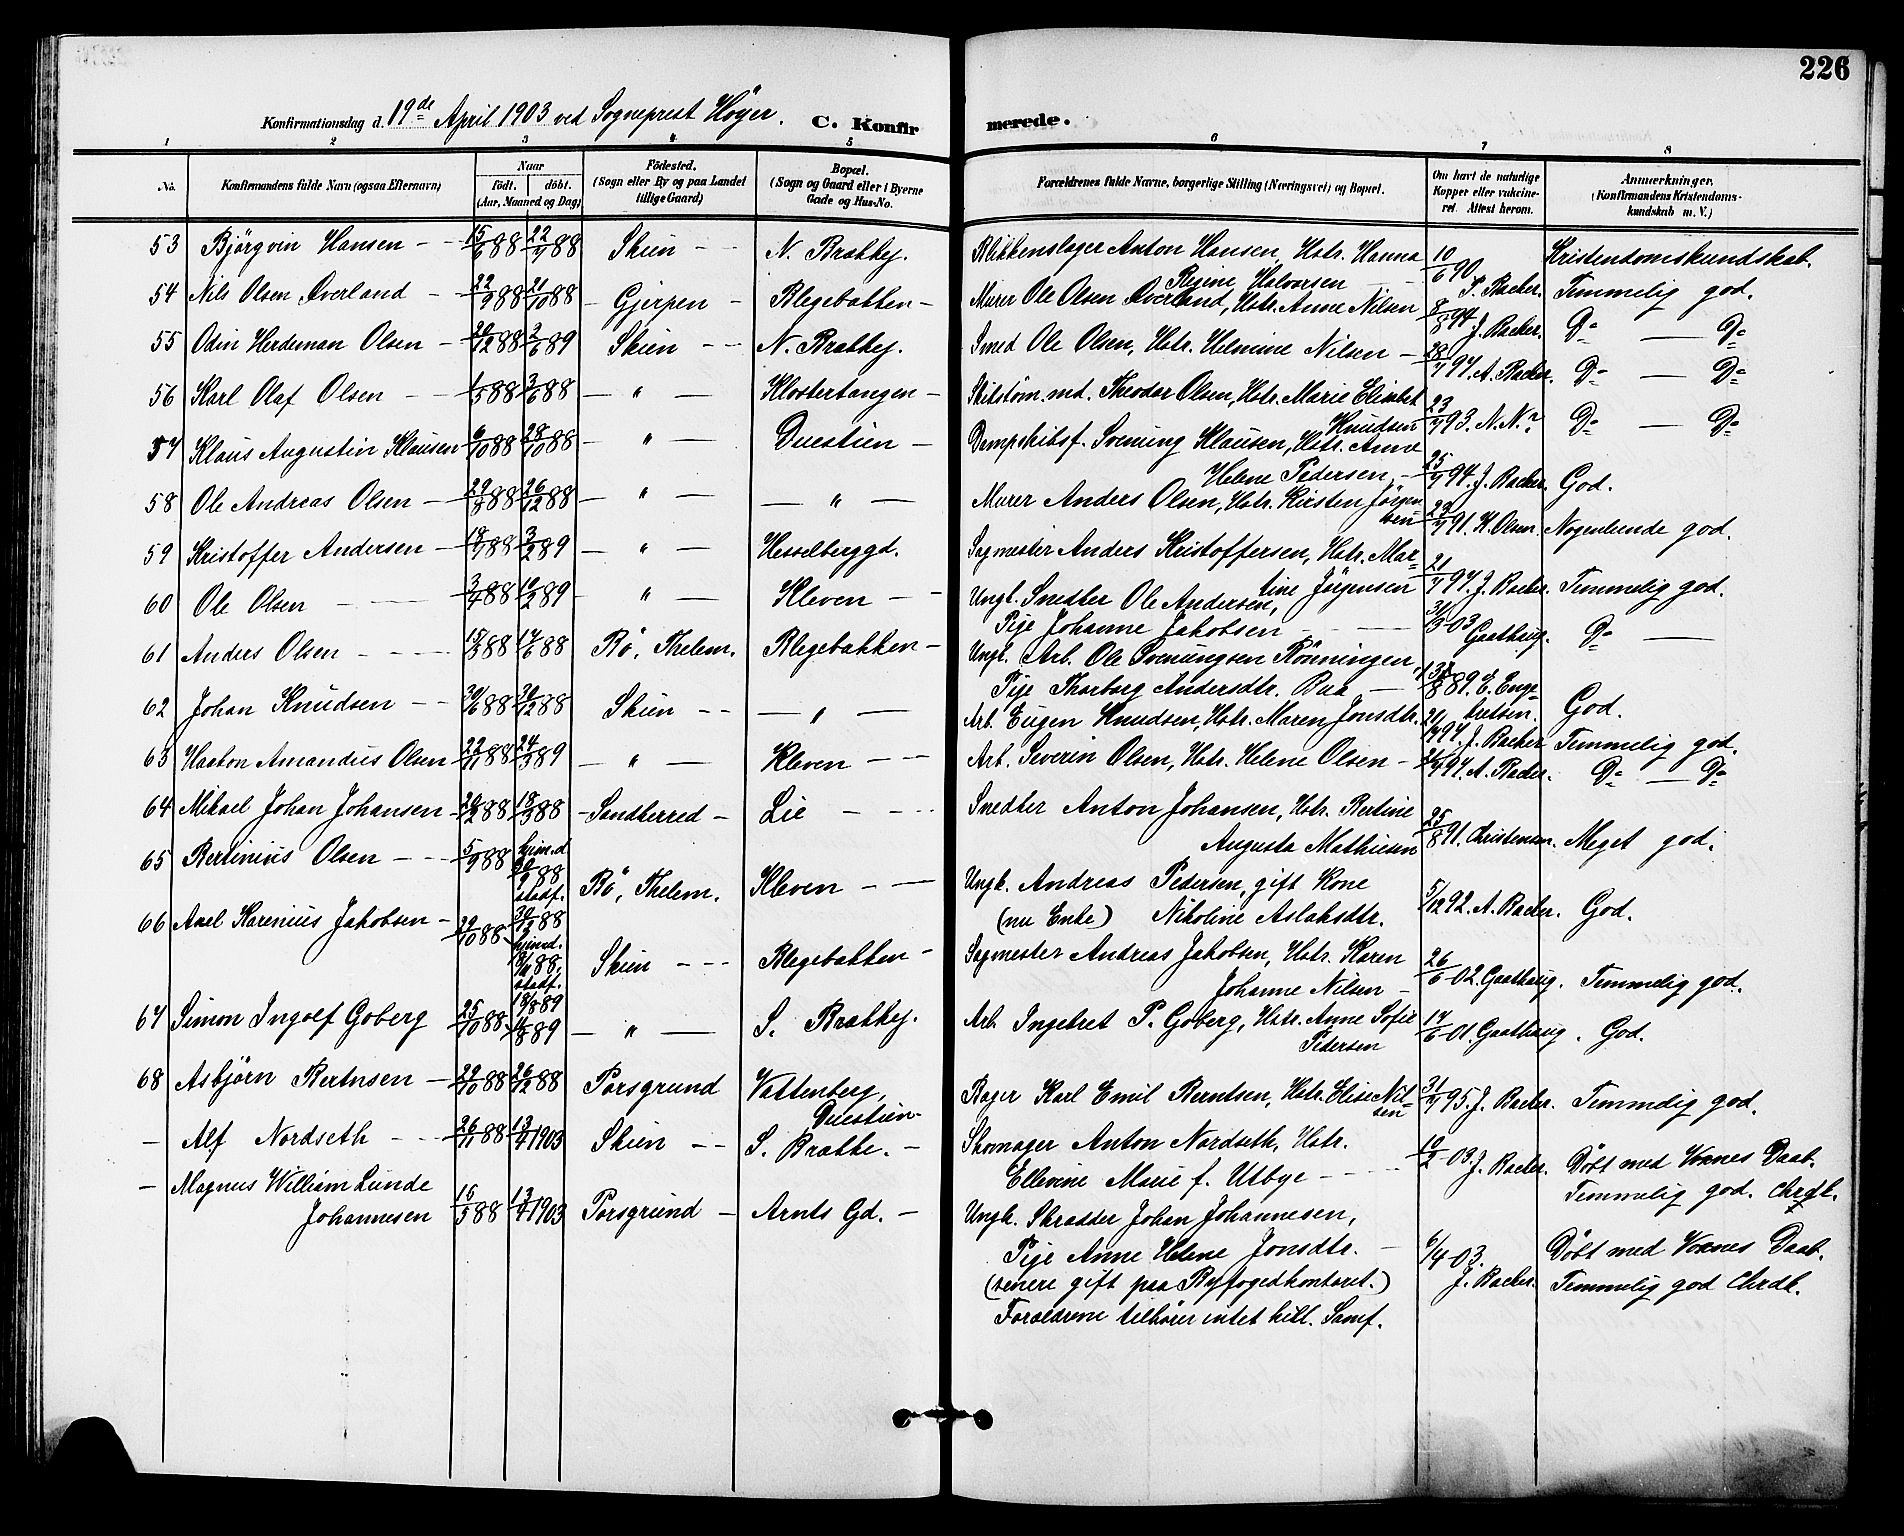 226
Konfirmationsdag d. 19de April 1903 ved Sogneprest Höyer. C. Konfirmerede.
1 2 3 4 5 6 7 8
No. Konfirmandens fulde Navn (ogsaa Efternavn) Naar födt. döbt. (Aar, Maaned og Dag) Födested. (Sogn eller By og paa Landet tillige Gaard) Bopæl. (Sogn og Gaard eller i Byerne Gade og Hus-No. Forældrenes fulde Navne, borgerlige Stilling (Næringsvei) og Bopæl. Om havt de naturlige Kopper eller vakcineret. Attest herom. Anmærkninger. (Konfirmandens Kristendomskundskab m. V.)
53 Björgvin Hansen 15/6 88 22/7 88 Skien N. Brækkej. Blikkenslager Anton Hansen, Hstr. Hanna Regine Halvorsen 10/6 90 J. Backer. Kristendomskundskab. Temmelig god.
54 Nils Olsen Överland 22/9 88 21/10 88 Gjerpen Blegebakken Murer Ole Olsen Överland, Hstr. Anne Nilsen 8/8 94 J. Backer. Do — Do
55 Odin Herdeman Olsen 20/12 88 2/6 89 Skien N. Brækkej. Smed Ole Olsen, Hstr. Helmine Nilsen 28/7 97. A. Backer. Do — Do
56 Karl Olaf Olsen 1/5 88 3/6 88 — " — Klostertangen Skibstöm.md. Theodor Olsen, Hstr. Marie Elisabet Knudsen 23/7 93. N. N. Do — Do
57 Klaus Augustin Klausen 6/10 88 28/10 88 — " — Duestien Dampskibsf. Svenung Klausen, Hstr. Anne Helene Pedersen 25/7 94. J. Backer. God.
58 Ole Andreas Olsen 29/8 88 26/12 88 — " — — " — Murer Anders Olsen, Hstr. Kirsten Jörgensen 23/7 91. K. Olsen. Nogenlunde god.
59 Kristoffer Andersen 18/7 88 3/2 89 — " — Hesselberggd. Sagmester Anders Kristoffersen, Hstr. Martine Jörgensen 21/7 97. J. Backer. Temmelig god.
60 Ole Olsen 3/4 88 10/2 89 — " — Kleven Ungk. Snedker Ole Andersen, Pige Johanne Jakobsen 31/3 03 Gaathaug. Do —
61 Anders Olsen 18/3 88 17/6 88 Bö, Thelem. Blegebakken Ungk. Arb. Ole Svenungsen Rönningen, Pige Thorborg Andersdtr. Bua 13/8 89. E. Engebretsen. God.
62 Johan Knudsen 30/6 88 30/12 88 Skien — " — Arb. Eugen Knudsen, Hstr. Maren Jonsdtr. 20/7 97. J. Backer Temmelig god.
63 Haakon Amandus Olsen 22/11 88 24/3 89 — " — Kleven Arb. Severin Olsen, Hstr. Helene Olsen 21/7 97. A. Backer. Do — Do
64 Mikael Johan Johansen 20/2 88 18/3 88 Sandherred Lie Snedker Anton Johansen, Hstr. Bertine Augusta Mathiesen 25/8 91. Christensen. Meget god.
65 Bertinius Olsen 5/9 88 hjem.d 20/9 88 stadf. 30/12 88 Bö, Thelem. Kleven Ungk. Andreas Pedersen, gift Kone (nu Enke) Nikoline Aslaksdtr. 5/12 92. A. Backer. God.
66 Axel Karenius Jakobsen 29/10 88 hjem.d. 18/11 88, stadf. 18/8 89 Skien Blegebakken Sagmester Andreas Jakobsen, Hstr. Karen Johanne Nilsen 26/6 02. Gaathaug. Temmelig god.
67 Simon Ingolf Goberg 25/10 88 4/8 89 — " — S. Brækkej. Arb. Ingebret P. Goberg, Hstr. Anne Sofie Pedersen 17/6 01. Gaathaug. God.
68 Asbjörn Berntsen 29/10 88 26/12 88 Porsgrund Vattenberg, Duestien Bager Karl Emil Berntsen, Hstr. Elise Nilsen 31/7 95. J. Backer. Temmelig god.
— Alf Nordseth 26/11 88 13/4 1903 Skien S. Brække. Skomager Anton Nordseth, Hstr. Ellevine Marie f. Utbye 10/2 03. J. Backer. Döbt med Voxnes Daab. Temmelig god. Chrdk.
— Magnus William Lunde Johannesen 15/5 88 13/4 1903 Porsgrund Arnts Gd. Ungk. Skrædder Johan Johannesen, Pige Anne Helene Jonsdtr. (senere gift paa Byfogedkontoret.) Forældrene tilhörer intet kirk. Samf. 6/4 03. J. Backer. Döbt med Voxnes Daab. Temmelig god Chrdk.